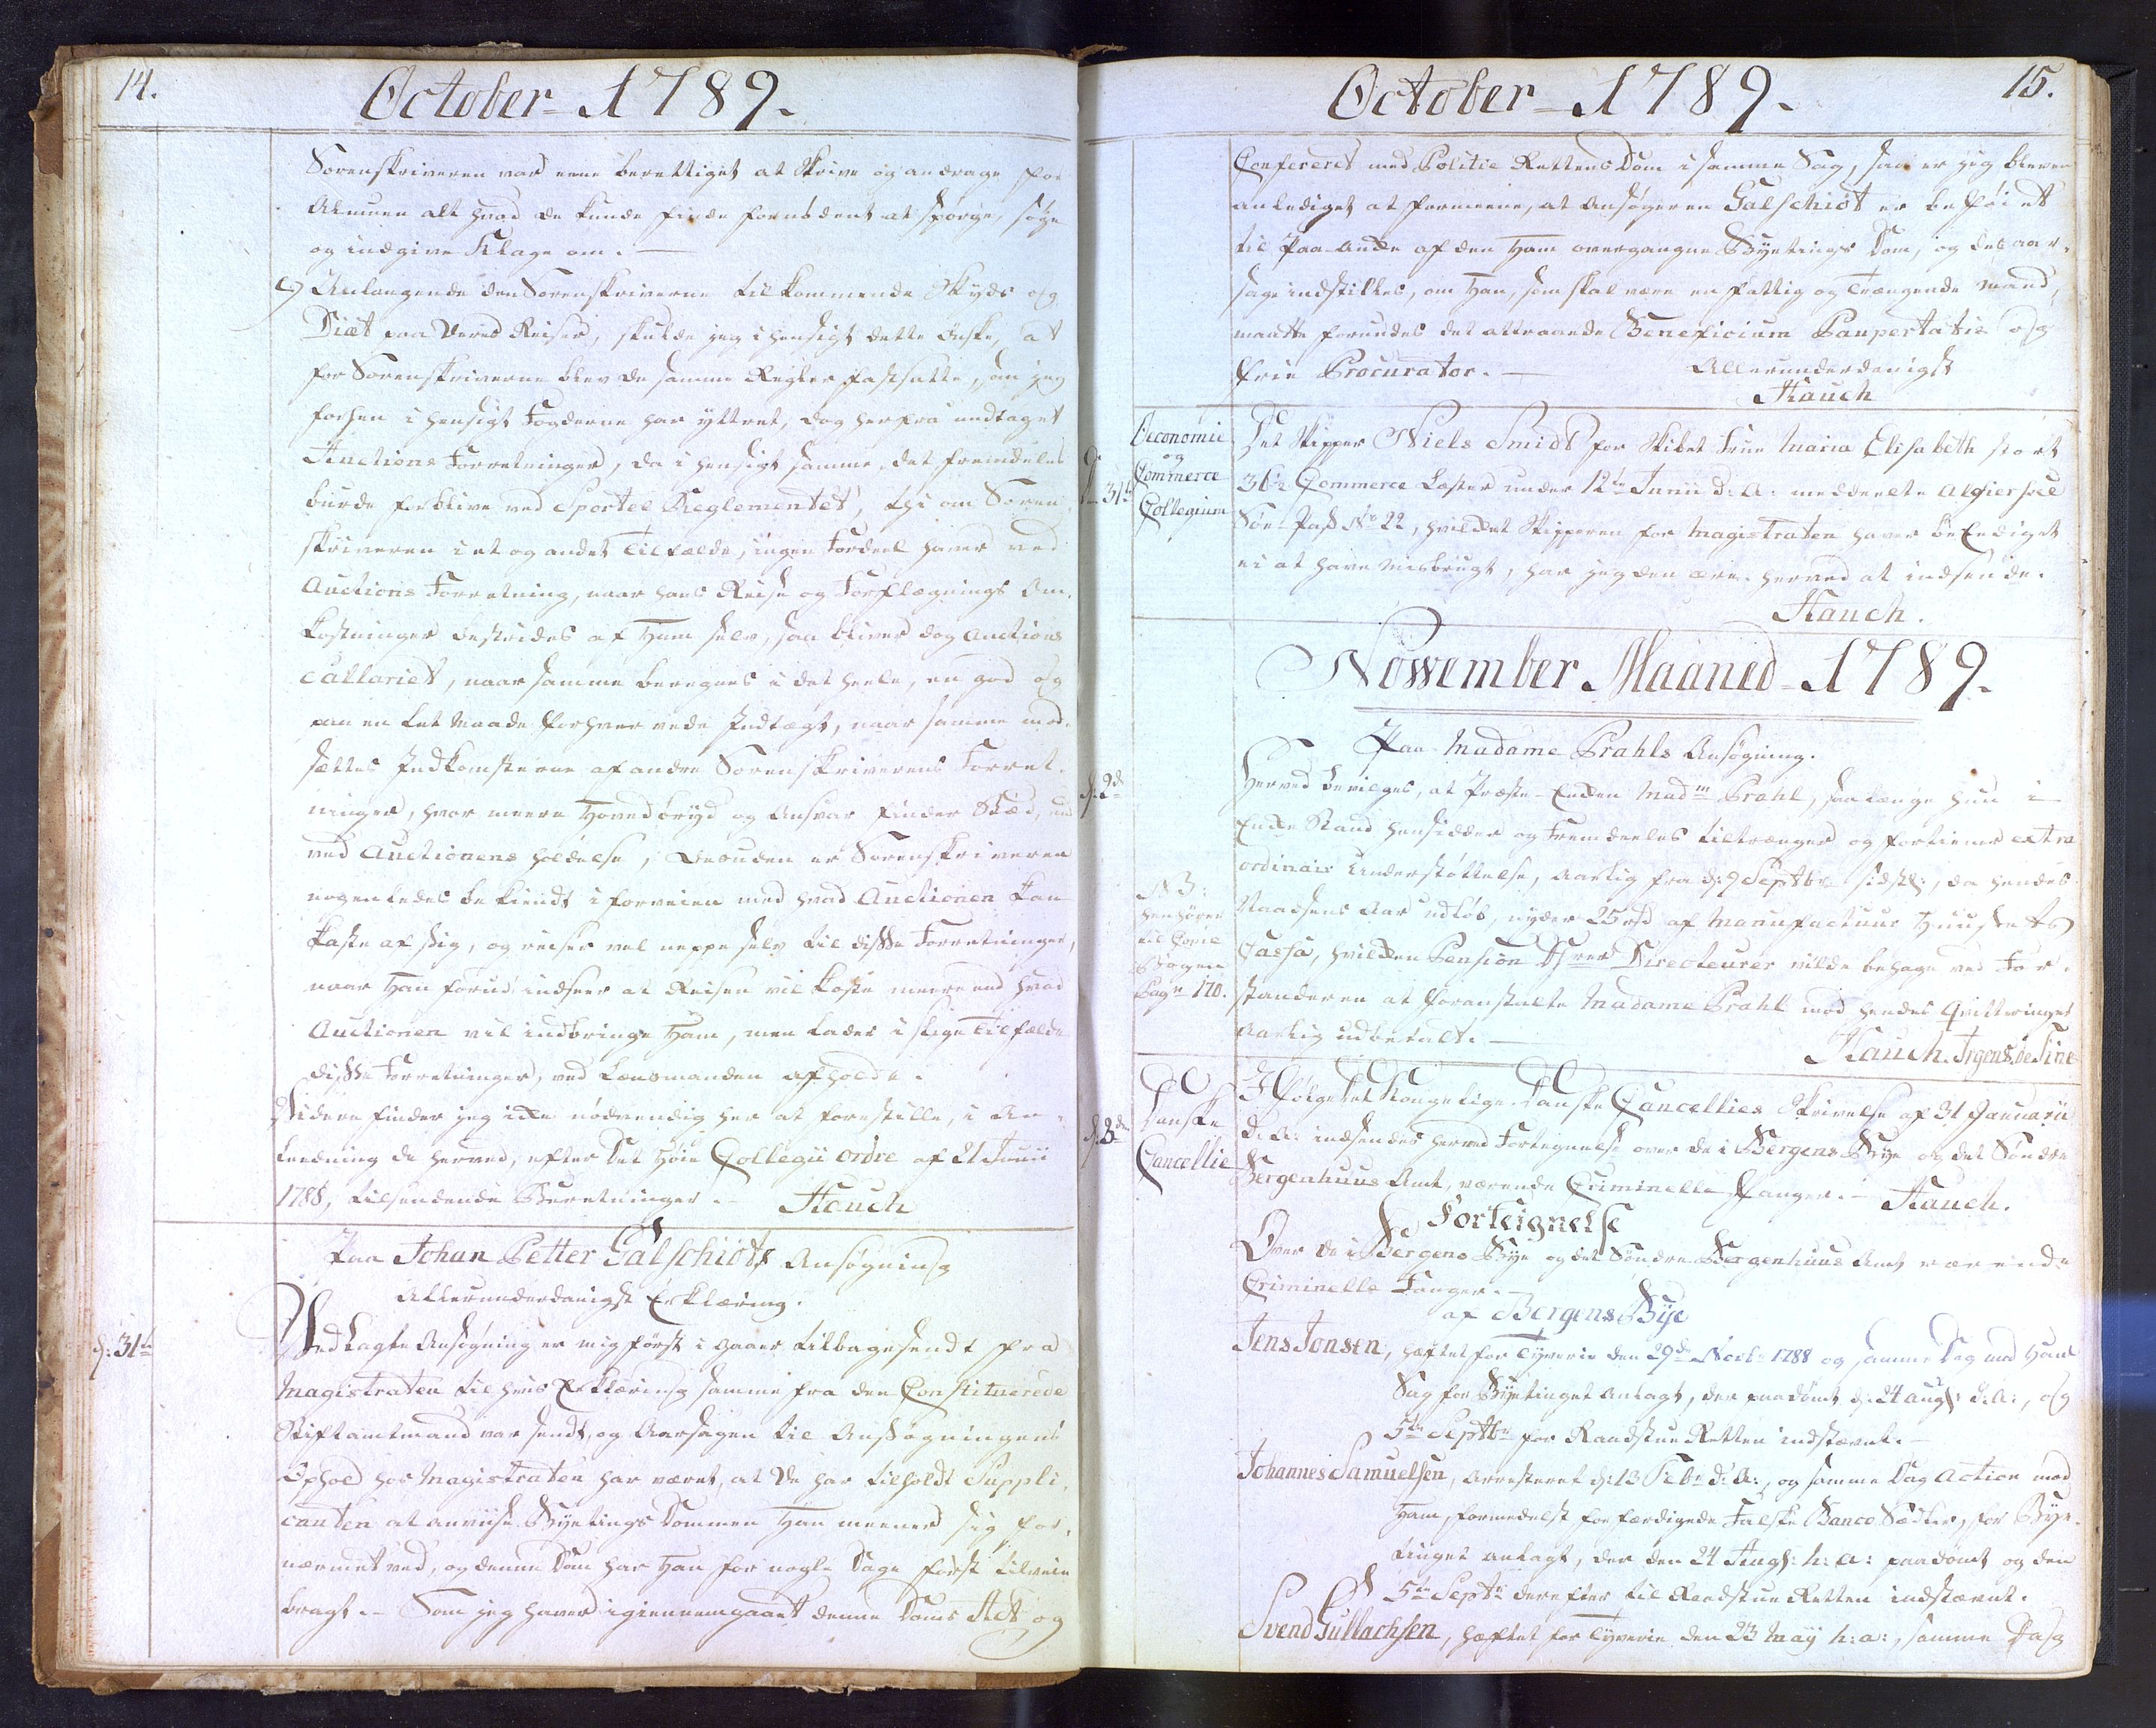 14.
October - 1789.
Sorenskriveren var eene berettiget at skrive og andrage for
Almuen alt hvad de kunde finde fornødent at spørge, søge
og indgive Klage om. —
9) Anlangende den Sorenskriverne tilkommende Skyds og
Diæt paa deres Reiser, skulde jeg i hensigt dette ønske, at
for Sorenskriverne blev de samme Regler fastsatte, som jeg
forhen i hensigt Fogderne har yttret, dog herfra undtaget
Auctions Forretninger, da i hensigt samme, det fremdeles
burde forblive ved Sportel Reglementet, thi om Soren¬
skriveren i et og andet Tilfælde, ingen Fordeel haver ved
Auctions Forretning, naar hans Reise og Forplægnings Om¬
kostninger bestrides af Ham selv, saa bliver dog Auctions
Sallariet, naar samme beregnes i det heele, en god og
paa en let Maade forhvervede Indtægt, naar samme mod¬
sættes Indkomsterne af andre Sorenskriverens Forret¬
ninger, hvor meere Hovedbryd og Ansvar finder Stæd, end
ved Auctionens holdelse, desuden er Sorenskriveren
nogenledes bekiendt i forveien med hvad Auctionen kan
kaste af sig, og reiser vel neppe selv til disse Forretninger,
naar Han forud indseer at Reisen vil koste meere end hvad
Auctionen vil indbringe Ham, men lader i slige Tilfælde
disse Forretninger, ved Lensmanden afholde.
Videre finder jeg icke nødvendig her at forestille, i An¬
ledning de herved, efter Det Høie Collegii ordre af 21 Junii
1788, tilsendende Beretninger. Hauch
Paa Johan Petter Galschiøts Ansøgning
allerunderdanigst Erklæring.
d: 31te
Vedlagte Ansøgning er mig først i Gaar tilbagesendt fra
Magistraten til hvis Erklæring samme fra den Constituerede
Stiftamtmand var sendt, og Aarsagen til Ansøgningens
Ophold hos Magistraten har været, at de har tilholdt Suppli¬
canten at anviise Byetings Dommen Han meener sig for¬
nærmet ved, og denne Dom har Han for nogle Dage først tilveie
bragt. — Som jeg haver igiennemgaaet denne Doms Act og
15.
October - 1789.
Confereret med Politie Rettens Dom i samme Sag, saa er jeg bleven
anlediget at formeene, at Ansøgeren Galschiøt er beføiet
til Paa-Anke af den Ham overgangne Byetings Dom, og des aar¬
sage indstilles, om Han, som skal være en fattig og Trængende Mand,
maatte forundes det attraaende Beneficium Paupertatis og
frie Procurator. — Allerunderdanigst
Hauch
Oeconomie
og
Commerce
Collegium
d: 31te
Det Skipper Niels Smidt for Skibet Frue Maria Elisabeth stort
36 1/2 Commerce Læster under 12te Junii d: A: meddeelte Algiersk
Søe Pass No 22, hvilket Skipperen for Magistraten haver beEediget
ei at have misbrugt, har jeg den ære herved at indsende.
Hauch.
November Maaned - 1789.
Paa Madame Prahls Ansøgning.
d. 2de
Herved bevilges, at Præste-Enken Madm Prahl, saa længe hun i
Enke Stand hensidder og Fremdeeles tiltrænger og fortiener extra
ordinair Understøttelse, aarlig fra d: 9 Septbr sidstl:, da hendes
N 3:
henhører
til Copie
Bogen
Pagn 170.
Naadsens Aar udløb, nyder 25 rd af Manufactuur Huusets
Cassa, hvilken Pension Hrer Directeurer vilde behage ved For¬
standeren at foranstalte Madame Prahl mod hendes Qvitteringer
Aarlig udbetalt. —
Hauch. Irgens. de Fine
d. 3de
Danske
Cancellie
Ifølge Det Kongelige Danske Cancellies Skrivelse af 31 Januarii
d: A: indsendes herved Fortegnelse over de i Bergens Bye og det Søndre
Bergenhuus Amt, værende Criminelle Fanger. — Hauch.
Forteignelse
Over de i Bergens Bye og det Søndre Bergenhuus Amt værende
Criminelle Fanger. —
af Bergens Bye
Jens Jonsen, hæftet for Tyverie den 29de Novb: 1788 og samme Dag med Hans
Sag for Byetinget anlagt, der paadømt d: 24 Augst: d: A:, og
5te Septbr for Raadstue Retten indstævnt. —
Johannes Samuelsen, arresteret d: 13 Febr d: A:, og samme Dag Action mod
Ham, formedelst forfærdigede Falske Banco Sedler, for Bye¬
tinget anlagt, der den 24 Augst: h: a: paadømt og den
5te Septbr derefter til Raadstue Retten indstævnt.
Svend Gullachsen, hæftet for Tyverie den 23 May h: a:, samme Dag